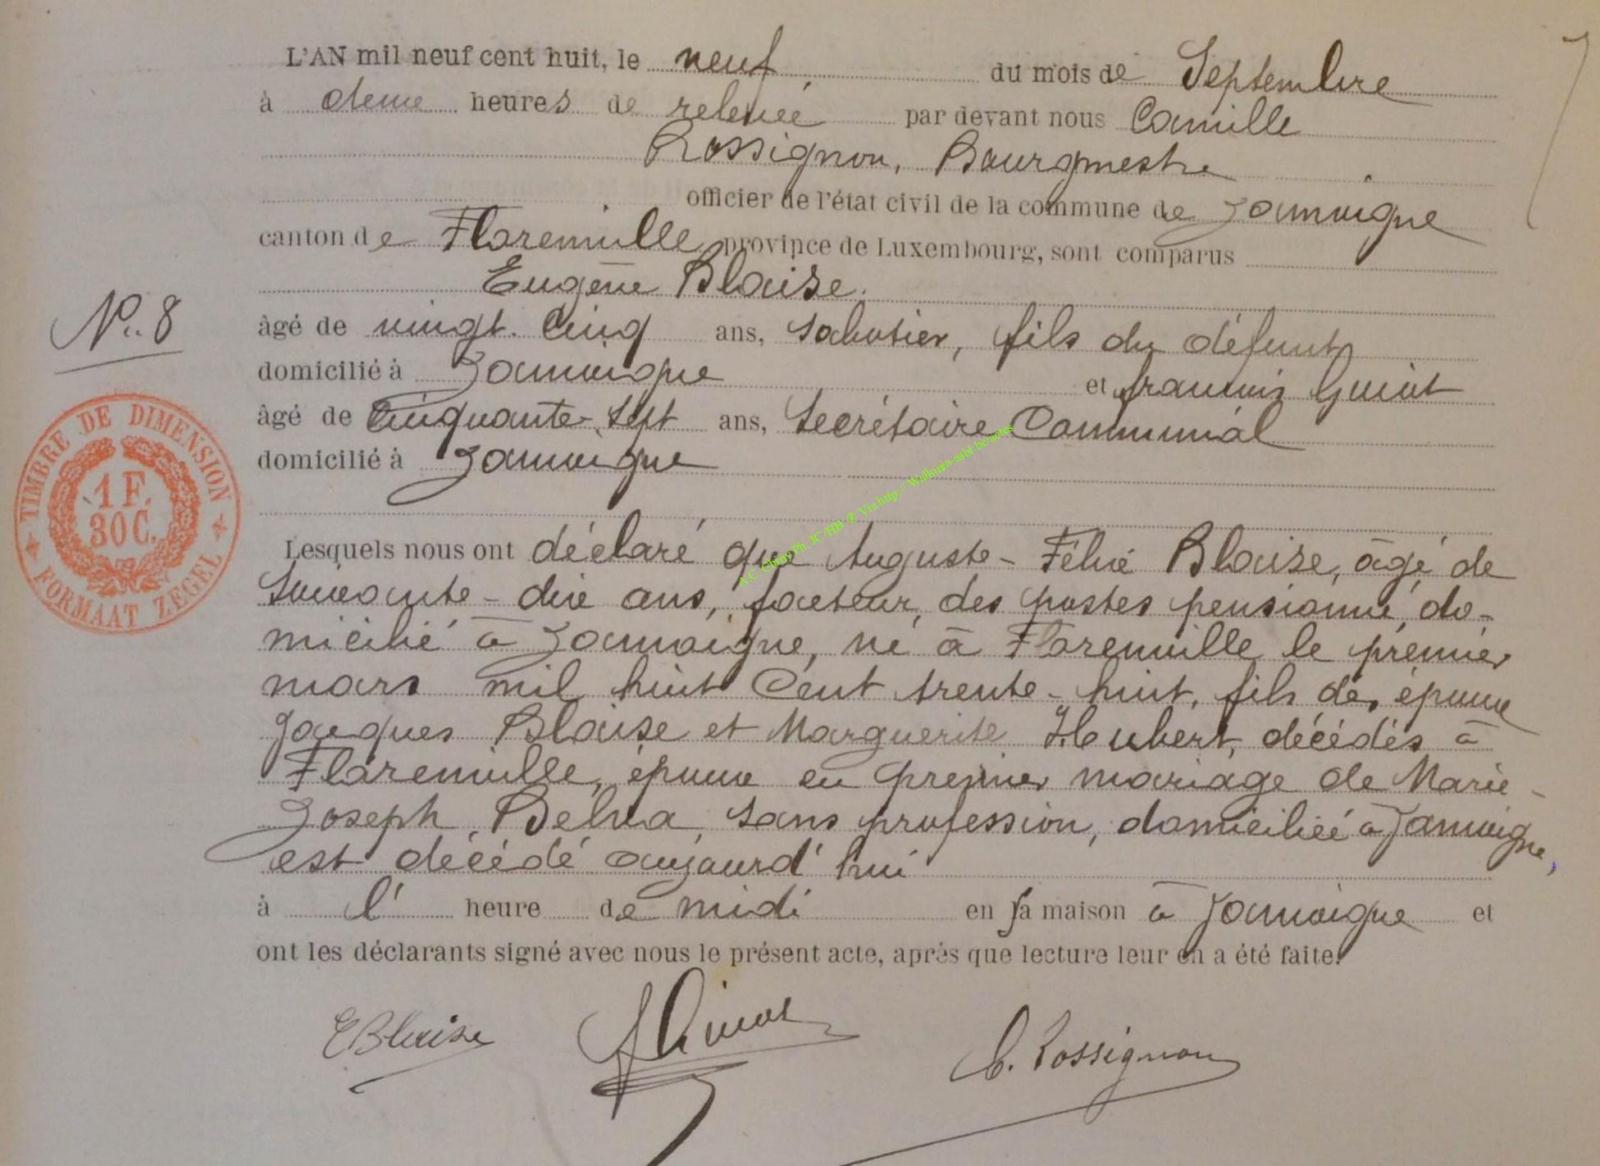 L'AN mil neuf cent huit, le neuf du mois de Septembre
à deux heures de relevée par devant nous Camille
Rossignon, Bourgmestre
officier de l'état civil de la commune de Jamoigne
canton de Florenville province de Luxembourg, sont comparus
Eugène Blaise.
âgé de vingt-cinq ans, sabotier, fils du défunt
N° 8
domicilié à Jamoigne et François Guiot
âgé de Cinquante-sept ans, Secrétaire Communal
domicilié à Jamoigne
TIMBRE DE DIMENSION
1 F.
30 C.
FORMAAT ZEGEL
Lesquels nous ont déclaré que Auguste-Félix Blaise, âgé de
Soixante-dix ans, facteur des postes pensionné, do-
micilié à Jamoigne, né à Florenville le premier
mars mil huit Cent trente-huit, fils des époux
Jacques Blaise et Marguerite Hubert, décédés à
Florenville, époux en premier mariage de Marie-
Joseph Belva, sans profession, domiciliée à Jamoigne,
est décédé aujourd'hui
à l' heure de midi en sa maison à Jamoigne et
ont les déclarants signé avec nous le présent acte, après que lecture leur en a été faite.
EBlaise
C. Rossignon